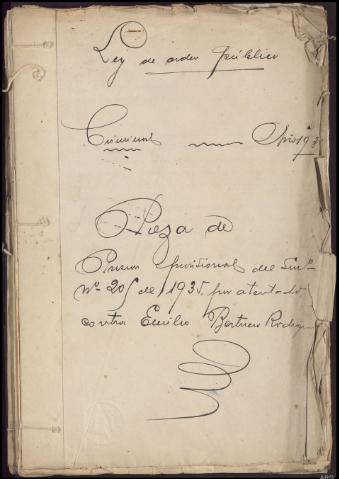 Ley de orden público
Criminal
Pieza de
Prision provisional del Sumº
nº 205 de 1935 por atentado
contra Emilio
ARO